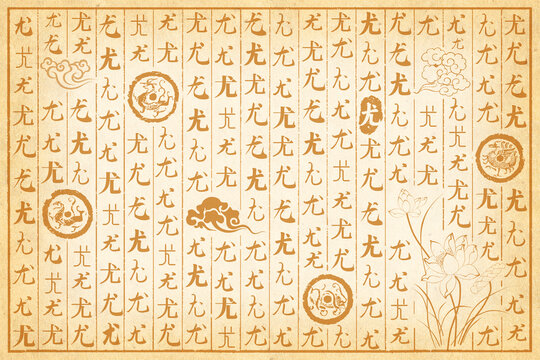 尤尤尤尤尤尤尤尤尤尤
尤尤尤尤尤尤尤尤尤尤
尤尤尤尤尤尤
尤尤尤尤
尤尤尤尤尤尤尤尤尤尤
尤尤尤尤尤尤尤尤尤尤尤
尤尤尤尤尤尤尤尤尤尤
尤尤尤尤尤尤尤尤尤尤
尤尤尤尤尤尤尤尤尤尤尤
尤尤尤尤尤尤尤尤尤尤尤
尤尤尤尤尤尤尤尤尤尤
尤尤尤尤尤尤尤尤尤尤
尤尤尤尤尤尤尤尤尤尤尤
尤尤尤尤尤尤尤尤尤尤
尤尤尤尤尤尤尤尤尤尤尤
尤尤尤尤尤尤尤尤尤
尤尤尤尤尤尤尤尤尤
尤尤尤尤尤尤尤尤尤尤尤